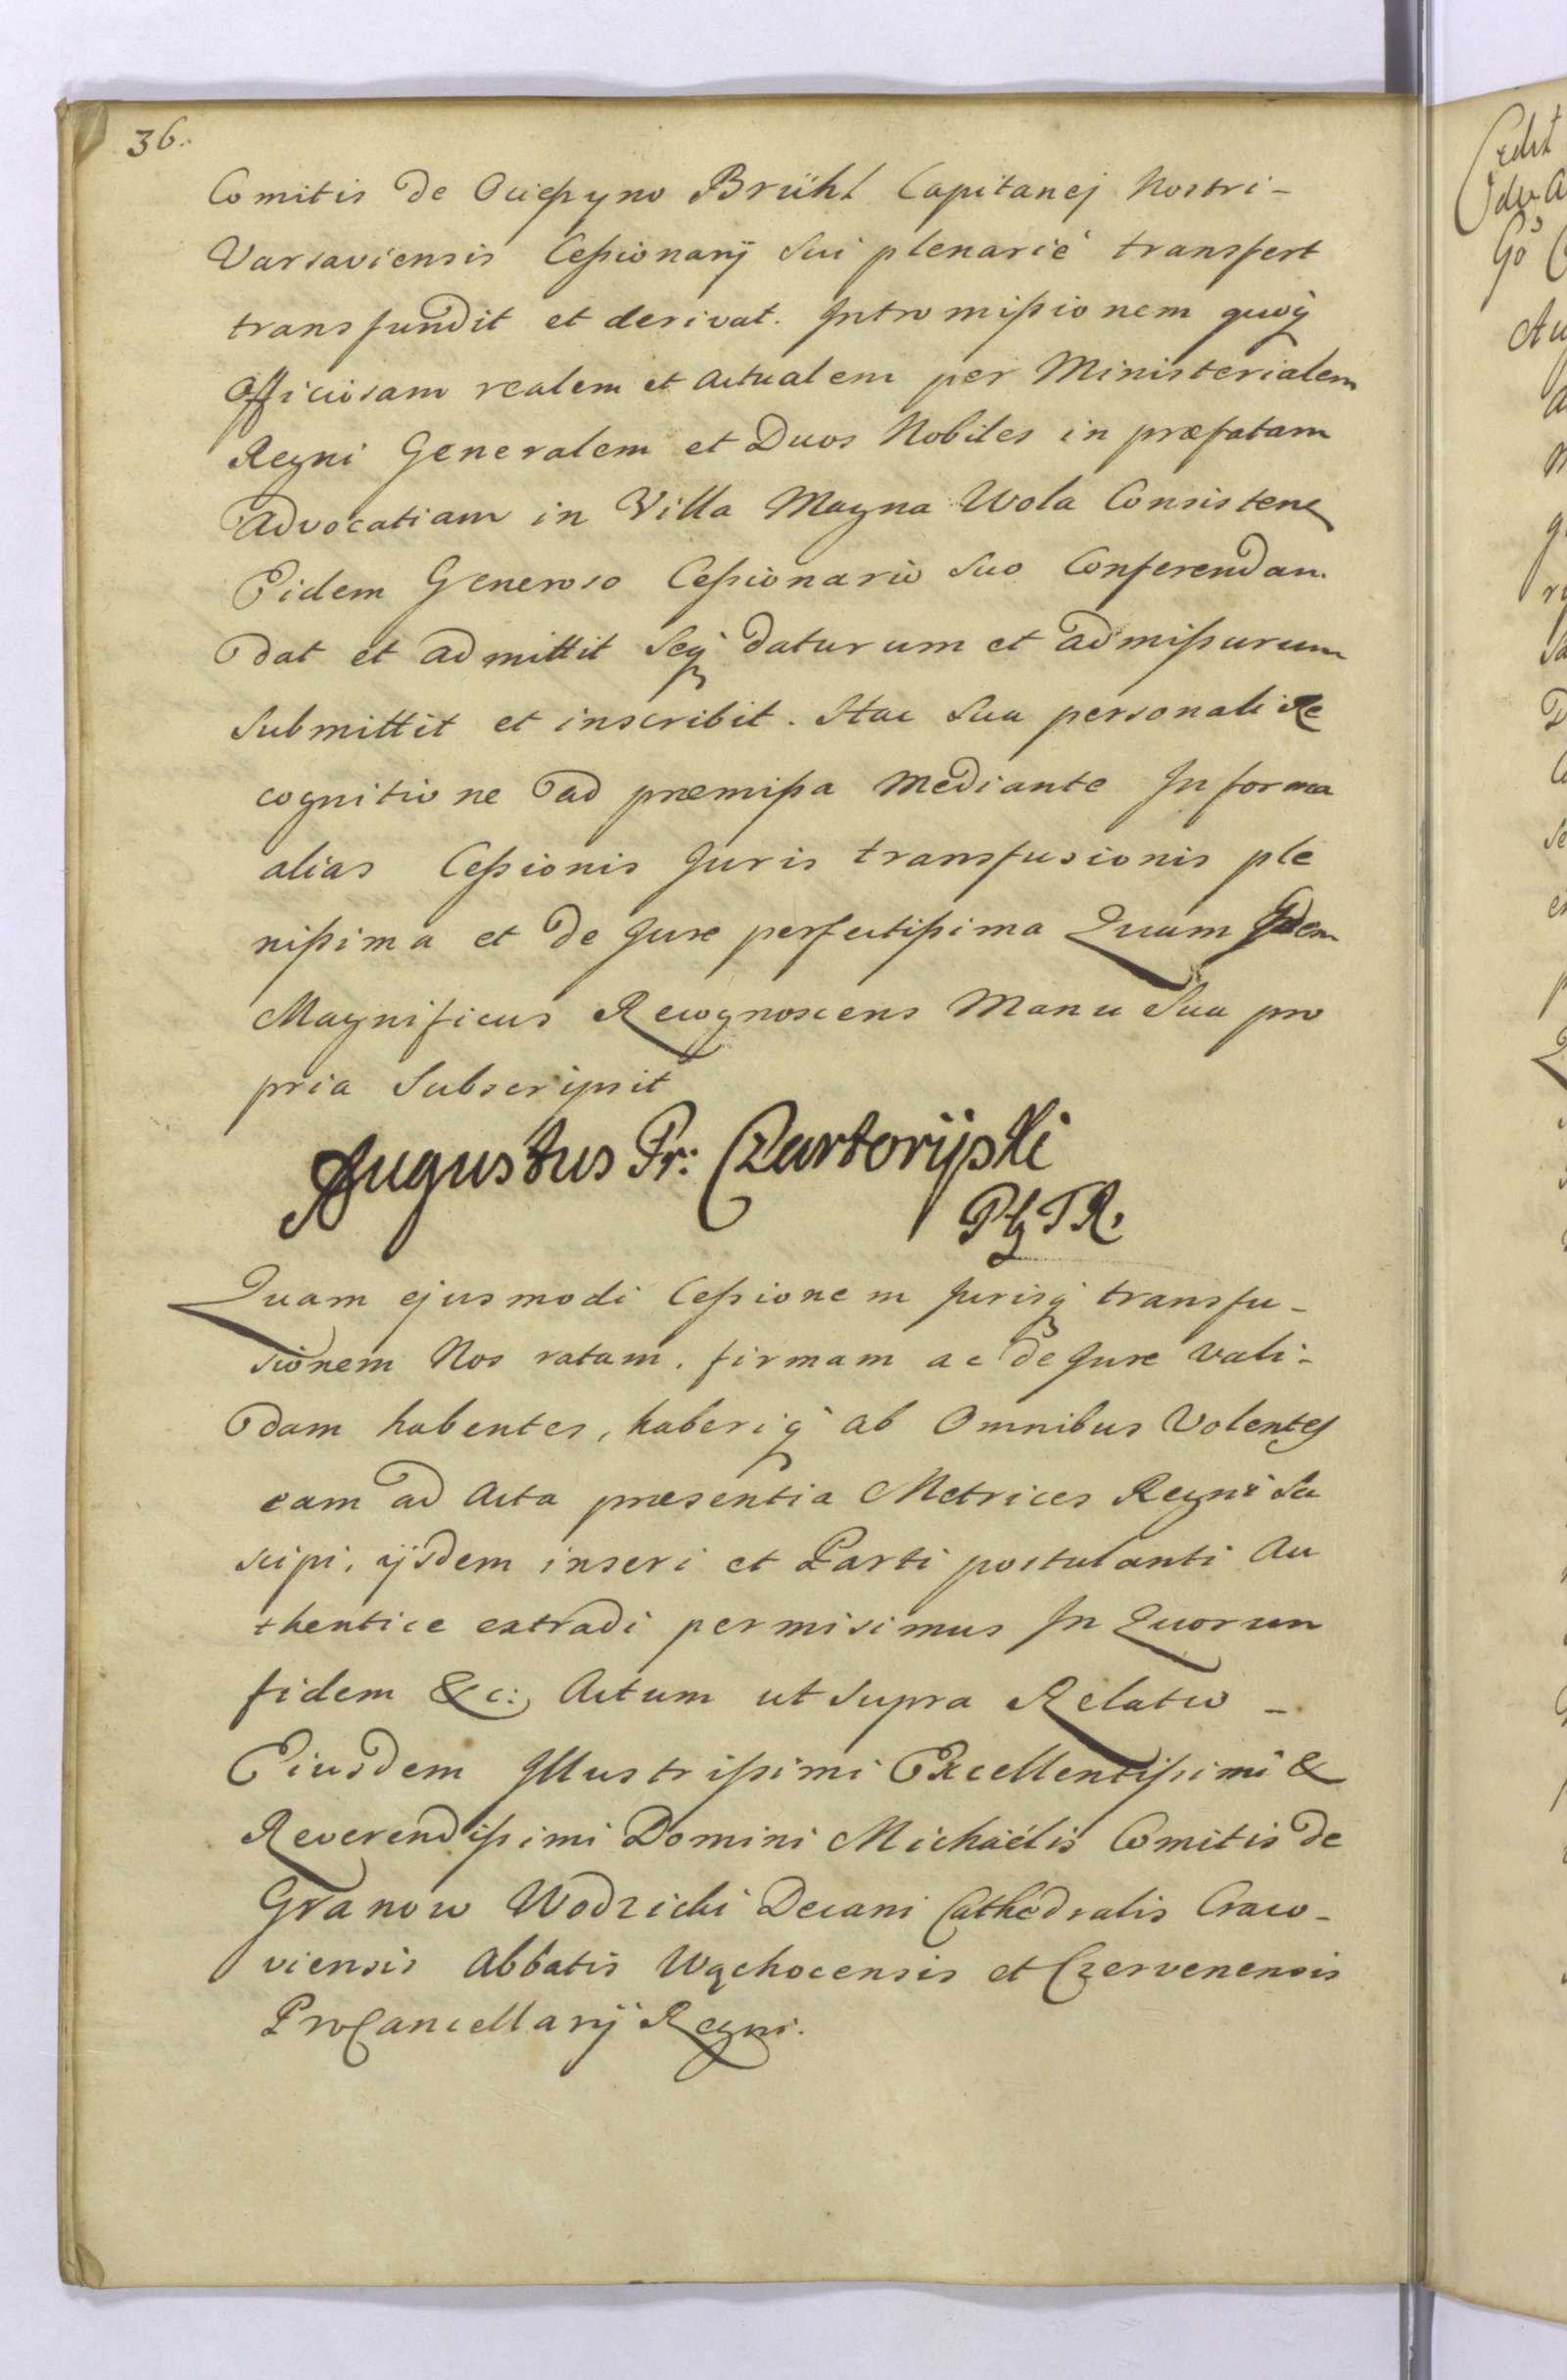 36.
Comitis de Ocieszyno Brühl Capitanej Nostri-
Varsaviensis Cessionarij Sui plenarié transfert
transfundit et derivat. Intromissionem quoq̀
Officiosam realem et actualem per Ministerialem
Regni Generalem et Duos Nobiles in præfatam
Advocatiam in Villa Magna Wola Consisten̄
Eidem Generoso Cessionario Suo Conferendam
dat et admittit Seq̀ daturum et admissurum
Submittit et inscribit. Hac Sua personali Re
cognitione ad præmissa mediante In forma
alias Cessionis Juris transfusionis ple
nissima et de Jure perfectissima Quam Idem
Magnificus Recognoscens Manu Sua pro
pria Subscripsit
Augustus Pr: Czartoryski
Quam ejusmodi Cessionem Jurisq̀ transfu-
sionem Nos ratam, firmam ac de Jure vali-
dam habentes, haberiq̀ ab Omnibus Volentes
eam ad Acta præsentia Metrices Regni Su
scipi, ijsdem inseri et Parti postulanti Au
thentice extradi permisimus In Quorum
fidem &c: Actum ut Supra Relatio -
Eiusdem Illustrissimi Excellentissimi &
Reverendissimi Domini Michaëlis Comitis de
Granow Wodzicki Decani Cathedralis Craco-
viensis Abbatis Wąchocensis et Czervenensis
ProCancellarij Regni.